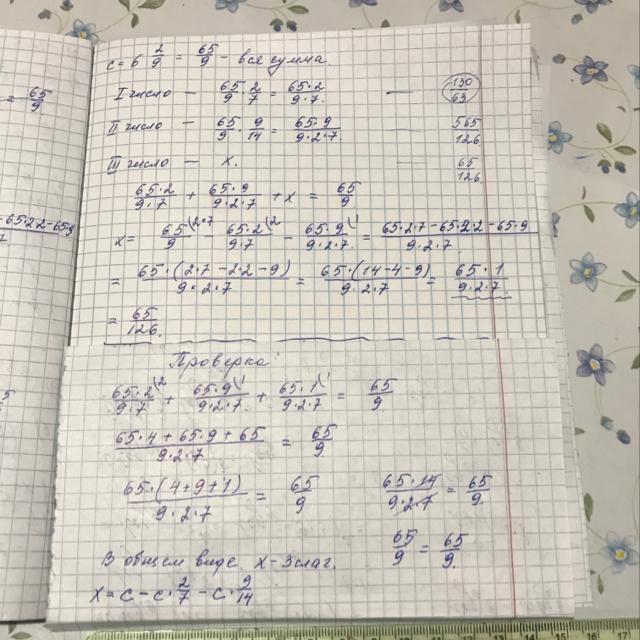 = 65/9
-65·2·2-65·9
c = 6 2/9 = 65/9 - вся сумма.
I число — 65/9 · 2/7 = 65·2/9·7. — 130/63
II число — 65/9 · 9/14 = 65·9/9·2·7. — 565/126
III число — x. = 65/126.
65·2/9·7 + 65·9/9·2·7 + x = 65/9
x = 65/9 \2·7 - 65·2/9·7 \2 - 65·9/9·2·7. \1 = 65·2·7-65·2·2-65·9/9·2·7.
= 65·(2·7-2·2-9)/9·2·7 = 65·(14-4-9)/9·2·7 = 65·1/9·2·7.
= 65/126.
Проверка:
65·2/9·7 \2 + 65·9/9·2·7. \1 + 65·1/9·2·7 \1 = 65/9
65·4+65·9+65/9·2·7 = 65/9
65·(4+9+1)/9·2·7 = 65/9 65·14/9·2·7 = 65/9.
65/9 = 65/9.
В общем виде x-3слаг.
x = c - c·2/7 - c·9/14